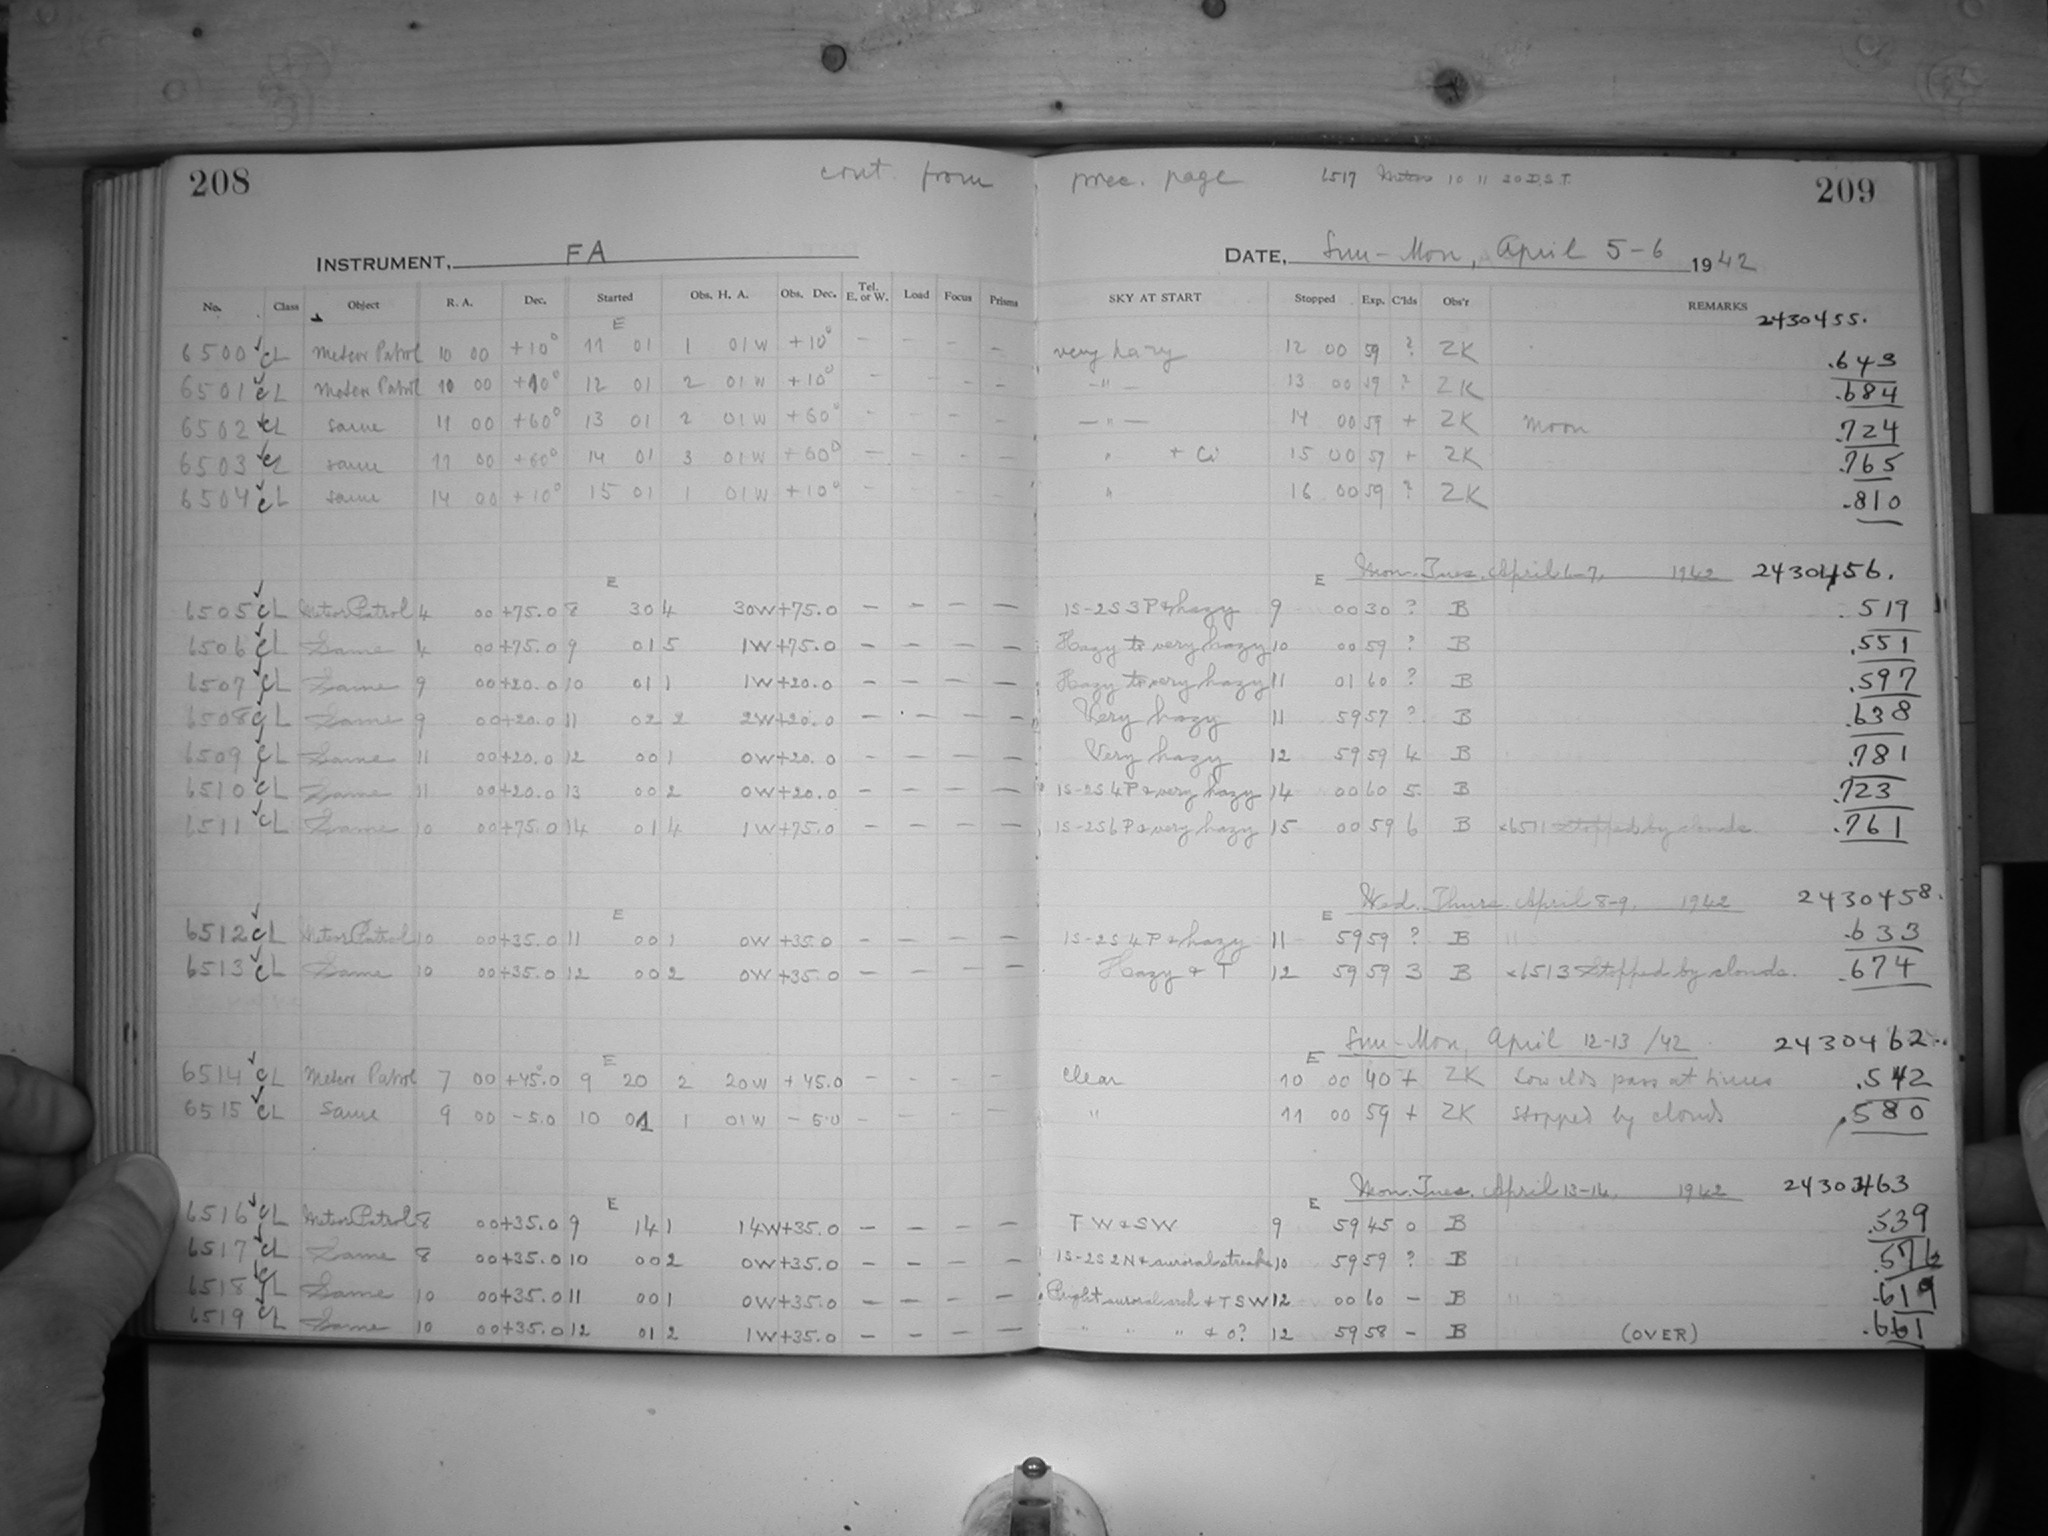 208 cont. from prec. page 6517 Meteor 10 11 20 D.S.T. 209
INSTRUMENT, FA DATE, Sun - Mon, April 5-6 1942
No. Class Object R. A. Dec. Started Obs. H. A. Obs. Dec. Tel. E. or W. Load Focus Prisms SKY AT START Stopped Exp. C'lds Obs'r REMARKS
E 2430455.
6500 ✓ CL Meteor Patrol 10 00 +10° 11 01 1 01W +10° - - - - very hazy 12 00 59 ? ZK .643
6501 ✓ CL Meteor Patrol 10 00 +10° 12 01 2 01W +10° - - - - -"- 13 00 59 ? ZK .684
6502 ✓ CL same 11 00 +60° 13 01 2 01W +60° - - - - -"- 14 00 59 + ZK Moon .724
6503 ✓ CL same 11 00 +60° 14 01 3 01W +60° - - - - " + Ci 15 00 59 + ZK .765
6504 ✓ CL same 14 00 +10° 15 01 1 01W +10° - - - - " 16 00 59 ? ZK .810
E E Mon. Tues. April 6-7, 1942 2430456.
6505 ✓ CL Meteor Patrol 4 00 +75.0 8 30 4 30W +75.0 - - - - 1S-2S 3P & hazy 9 00 30 ? B .519
6506 ✓ CL Same 4 00 +75.0 9 01 5 1W +75.0 - - - - Hazy to very hazy 10 00 59 ? B .551
6507 ✓ CL Same 9 00 +20.0 10 01 1 1W +20.0 - - - - Hazy to very hazy 11 01 60 ? B .597
6508 ✓ CL Same 9 00 +20.0 11 02 2 2W +20.0 - - - - Very hazy 11 59 57 ? B .638
6509 ✓ CL Same 11 00 +20.0 12 00 1 0W +20.0 - - - - Very hazy 12 59 59 4 B .781
6510 ✓ CL Same 11 00 +20.0 13 00 2 0W +20.0 - - - - 1S-2S 4P & very hazy 14 00 60 5 B .723
6511 ✓ CL Same 10 00 +75.0 14 01 4 1W +75.0 - - - - 1S-2S 6P & very hazy 15 00 59 6 B <6511 Stopped by clouds. .761
E E Wed. Thurs. April 8-9, 1942 2430458.
6512 ✓ CL Meteor Patrol 10 00 +35.0 11 00 1 0W +35.0 - - - - 1S-2S 4P & hazy 11 59 59 ? B .633
6513 ✓ CL Same 10 00 +35.0 12 00 2 0W +35.0 - - - - Hazy & T 12 59 59 3 B <6513 Stopped by clouds. .674
E Sun-Mon, April 12-13 /42 2430462.
6514 ✓ CL Meteor Patrol 7 00 +45.0 9 E 20 2 20W +45.0 - - - - clear 10 00 40 + ZK Low clds pass at times .542
6515 ✓ CL same 9 00 -5.0 10 01 1 01W -5.0 - - - - " 11 00 59 + ZK stopped by clouds .580
E E Mon. Tues. April 13-14, 1942 2430463
6516 ✓ CL Meteor Patrol 8 00 +35.0 9 14 1 14W +35.0 - - - - T W & SW 9 59 45 0 B .539
6517 ✓ CL Same 8 00 +35.0 10 00 2 0W +35.0 - - - - 1S-2S 2N & auroral streaks 10 59 59 ? B .576
6518 ✓ CL Same 10 00 +35.0 11 00 1 0W +35.0 - - - - Bright auroral arch & T SW 12 00 60 - B .619
6519 ✓ CL Same 10 00 +35.0 12 01 2 1W +35.0 - - - - " " " & 0? 12 59 58 - B (OVER) .661